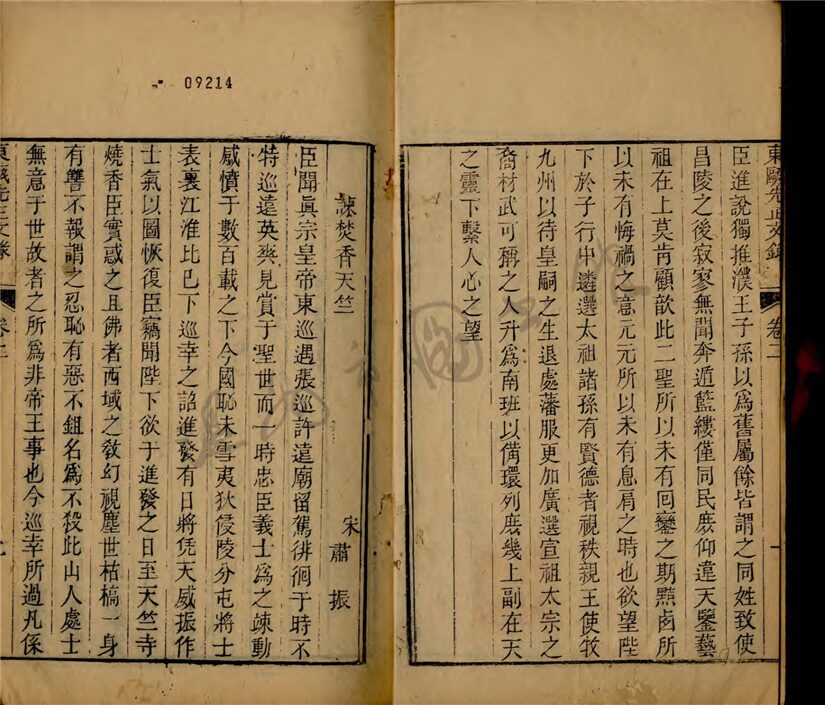 09214
東甌先正文錄
卷二
臣進說獨推濮王子孫以爲舊屬餘皆謂之同姓致使
昌陵之後寂寥無聞奔遁藍縷僅同民庶仰違天鑒藝
祖在上莫肯顧歆此二聖所以未有囘鑾之期黠鹵所
以未有悔禍之意元元所以未有息肩之時也欲望陛
下於子行中遴選太祖諸孫有賢德者視秩親王使牧
九州以待皇嗣之生退處藩服更加廣選宣祖太宗之
裔材武可稱之人升爲南班以備環列庶幾上副在天
之靈下繫人心之望
諫焚香天竺
宋 肅振
臣聞眞宗皇帝東巡遇張巡許遠廟留駕徘徊于時不
特巡遠英爽見賞于聖世而一時忠臣義士爲之竦動
感憤于數百載之下今國恥未雪夷狄侵陵分屯將士
表裏江淮比巳下巡幸之詔進發有日將凭天威振作
士氣以圖恢復臣竊聞陛下欲于進發之日至天竺寺
燒香臣實惑之且佛者西域之敎幻視塵世枯槁一身
有讐不報謂之忍恥有惡不鉏名爲不殺此山人處士
無意于世故者之所爲非帝王事也今巡幸所過凡係
東甌先正文錄
卷二